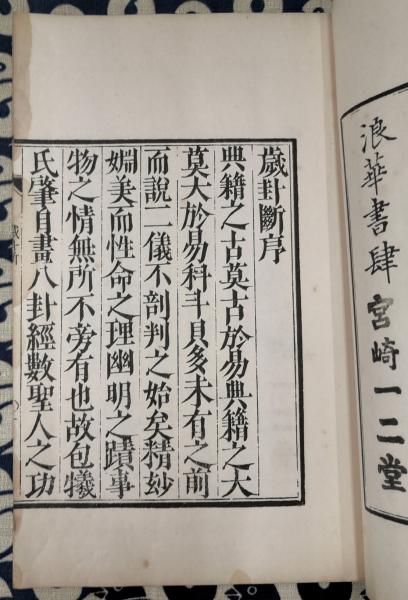 浪華書肆宮崎一二堂
歲卦斷序
典籍之古莫古於易典籍之大
莫大於易科斗貝多未有之前
而說二儀不剖判之始矣精玅
嫺美而性命之理幽明之賾事
物之情無所不旁有也故包犧
氏肇自畫八卦經數聖人之功